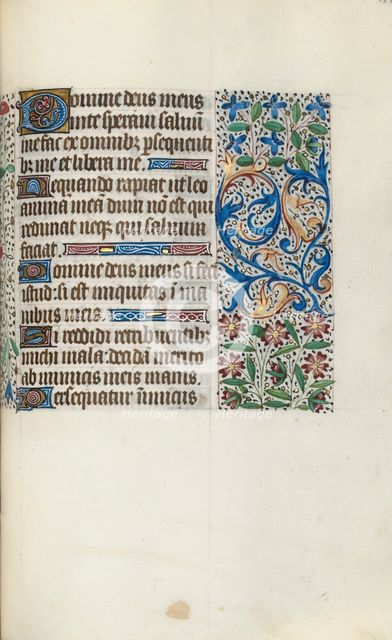 Domine deus meus
in te speravi salvū
me fac ex omnibz psequenti
bz me et libera me.
Nequando rapiat ut leo
anima meā dum nō est qui
redimat neqz qui saluum
faciat.
Domine deus meus si feci
istud: si est iniquitas ī ma
nibus meis.
Si reddidi retribuentibz
michi mala: decidā merito
ab inimicis meis inanis.
Persequatur inimicus
Heritage
Heritage
Heritage
Heritage